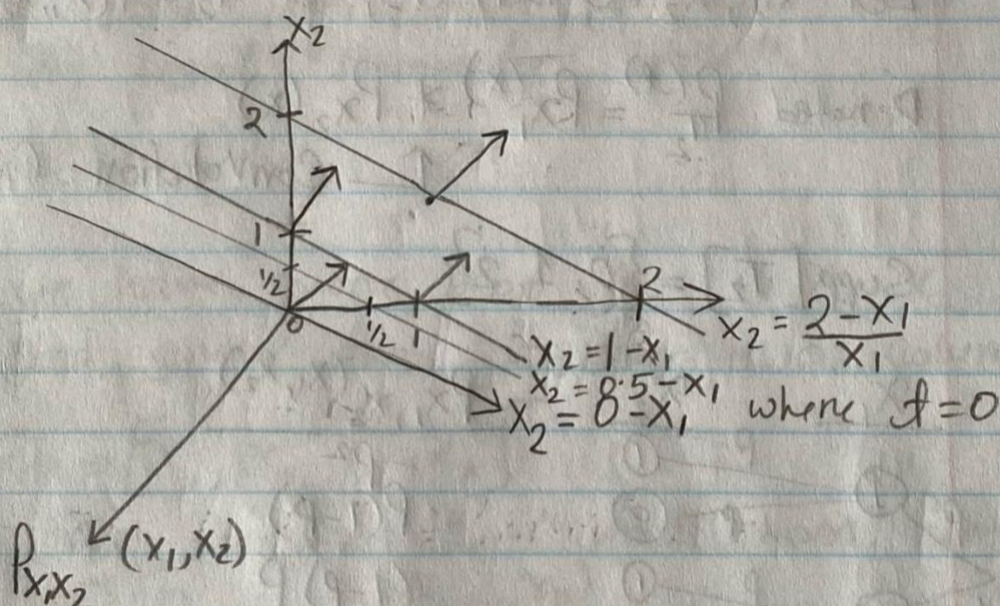 X2
2
1
1/2
0
1/2
1
2
X2 = 2 - X1 / X1
X2 = 1 - X1
X2 = 8.5 - X1
X2 = 8 - X1 where t = 0
PX1X2 (X1, X2)